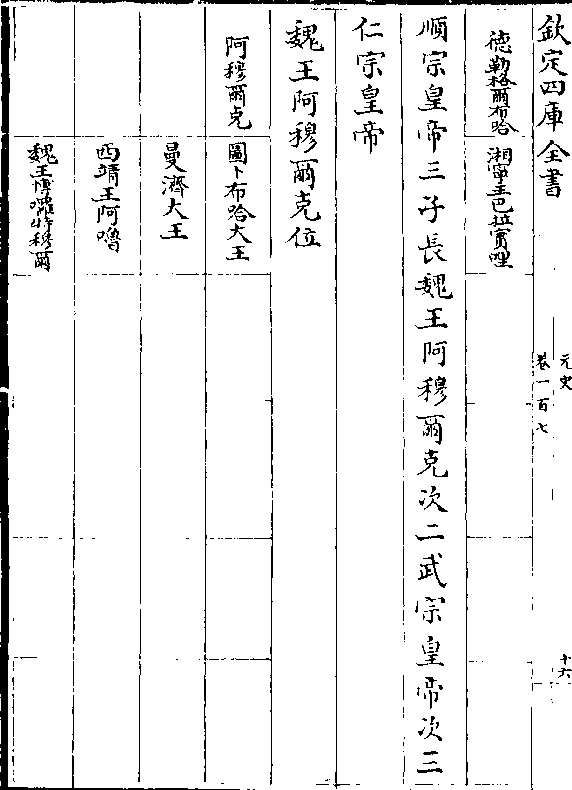 欽定四庫全書
元史
卷一百七
十六
德勒格爾布哈 湘寧王巴拉實哩
順宗皇帝三子長魏王阿穆爾克次二武宗皇帝次三
仁宗皇帝
魏王阿穆爾克位
阿穆爾克 圖卜布哈大王
曼濟大王
西靖王阿嚕
魏王博囉特穆爾